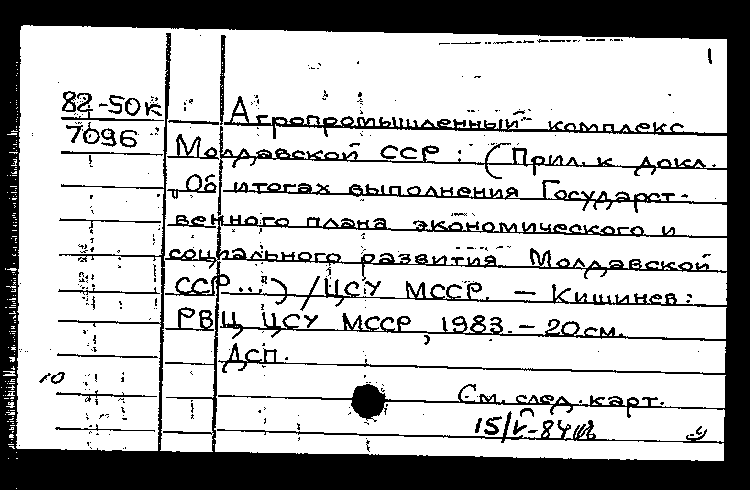 1
82-50к Агропромышленный комплекс
7096 Молдавской ССР : (Прил. к докл.
„Об итогах выполнения Государст-
венного плана экономического и
социального развития Молдавской
ССР...") / ЦСУ МССР. — Кишинев :
РВЦ ЦСУ МССР, 1983. — 20 см.
ДСП.
10
См. след. карт.
15/V-84